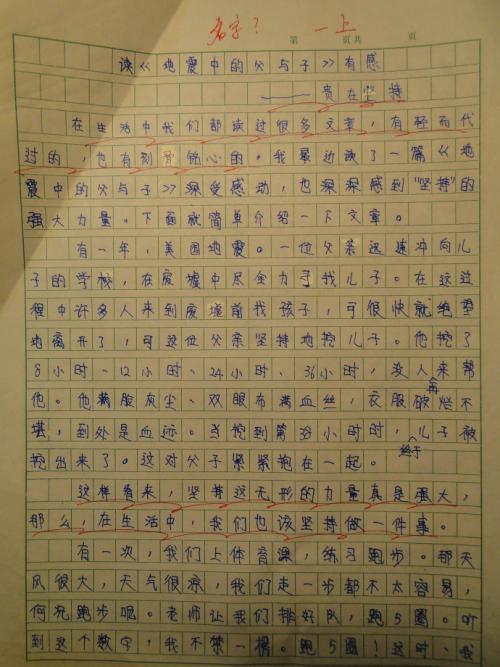 名字？ 一上
第 页共 页
读《地震中的父与子》有感
——贵在坚持
在生活中我们都读过很多文章，有轻而代
过的，也有刻骨铭心的。我最近读了一篇《地
震中的父与子》深受感动，也深深感到"坚持"的
强大力量。下面就简单介绍一下文章。
有一年，美国地震。一位父亲迅速冲向儿
子的学校，在废墟中尽全力寻找儿子。在这过
程中许多人来到废墟前找孩子，可很快就绝望
地离开了，可这位父亲坚持地挖儿子。他挖了
8小时、12小时、24小时、36小时，没人再来帮
他。他满脸灰尘、双眼布满血丝，衣服破烂不
堪，到处是血迹。当挖到第38小时时，终于儿子被
挖出来了。这对父子紧紧抱在一起。
这样看来，坚持这无形的力量真是强大，
那么，在生活中，我们也该坚持做一件事。
有一次，我们上体育课，练习跑步。那天
风很大，天气很凉，我们走一步都不太容易，
何况跑步呢。老师让我们排好队，跑5圈。听
到这个数字，我不禁一愣。跑5圈！这时、我